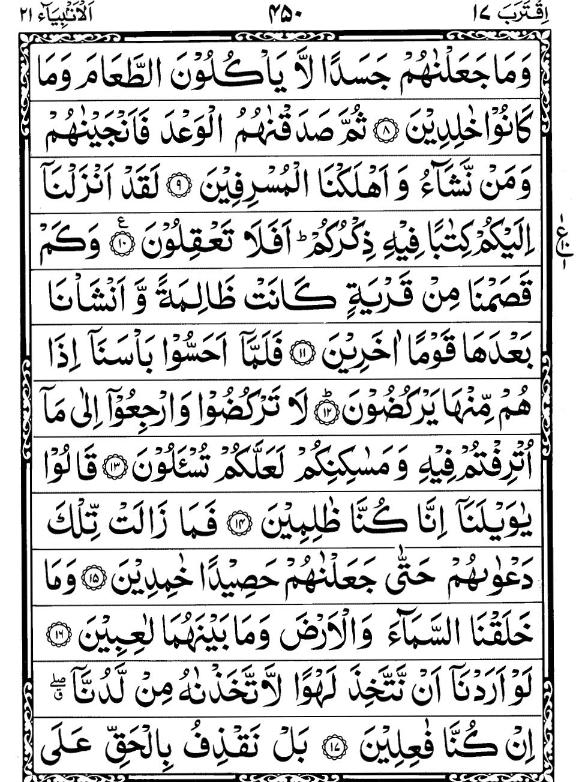 اِقْتَرَبَ ١٧ ۴۵۰ اَلْاَنْۢبِيَآء ٢١
وَمَا جَعَلْنٰهُمْ جَسَدًا لَّا يَاْكُلُوْنَ الطَّعَامَ وَمَا
كَانُوْا خٰلِدِيْنَ ﴿۸﴾ ثُمَّ صَدَقْنٰهُمُ الْوَعْدَ فَاَنْجَيْنٰهُمْ
وَمَنْ نَّشَآءُ وَ اَهْلَكْنَا الْمُسْرِفِيْنَ ﴿۹﴾ لَقَدْ اَنْزَلْنَاۤ
اِلَيْكُمْ كِتٰبًا فِيْهِ ذِكْرُكُمْ ؕ اَفَلَا تَعْقِلُوْنَ ﴿۱۰﴾ ع وَكَمْ
قَصَمْنَا مِنْ قَرْيَةٍ كَانَتْ ظَالِمَةً وَّ اَنْشَاْنَا
بَعْدَهَا قَوْمًا اٰخَرِيْنَ ﴿۱۱﴾ فَلَمَّاۤ اَحَسُّوْا بَاْسَنَاۤ اِذَا
هُمْ مِّنْهَا يَرْكُضُوْنَ ﴿۱۲﴾ؕ لَا تَرْكُضُوْا وَارْجِعُوْۤا اِلٰى مَاۤ
اُتْرِفْتُمْ فِيْهِ وَ مَسٰكِنِكُمْ لَعَلَّكُمْ تُسْـَٔلُوْنَ ﴿۱۳﴾ قَالُوْا
يٰوَيْلَنَاۤ اِنَّا كُنَّا ظٰلِمِيْنَ ﴿۱۴﴾ فَمَا زَالَتْ تِّلْكَ
دَعْوٰىهُمْ حَتّٰى جَعَلْنٰهُمْ حَصِيْدًا خٰمِدِيْنَ ﴿۱۵﴾ وَمَا
خَلَقْنَا السَّمَآءَ وَالْاَرْضَ وَمَا بَيْنَهُمَا لٰعِبِيْنَ ﴿۱۶﴾
لَوْ اَرَدْنَاۤ اَنْ نَّتَّخِذَ لَهْوًا لَّاتَّخَذْنٰهُ مِنْ لَّدُنَّاۤ ۖۗ
اِنْ كُنَّا فٰعِلِيْنَ ﴿۱۷﴾ بَلْ نَقْذِفُ بِالْحَقِّ عَلَى